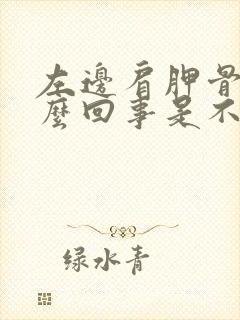 左邊肩胛骨
麼回事是不
绿水青